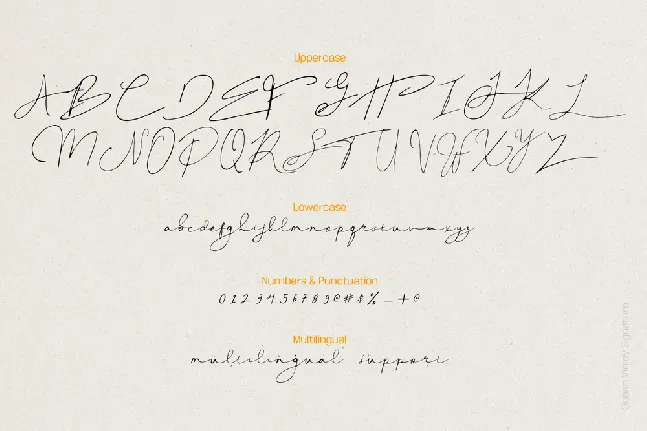 Uppercase
A B C D E F G H I J K L
M N O P Q R S T U V W X Y Z
Lowercase
abcdefghijklmnopqrstuvwxyz
Numbers & Punctuation
0 1 2 3 4 5 6 7 8 9 @ # $ % _ + @
Multilingual
multilingual support